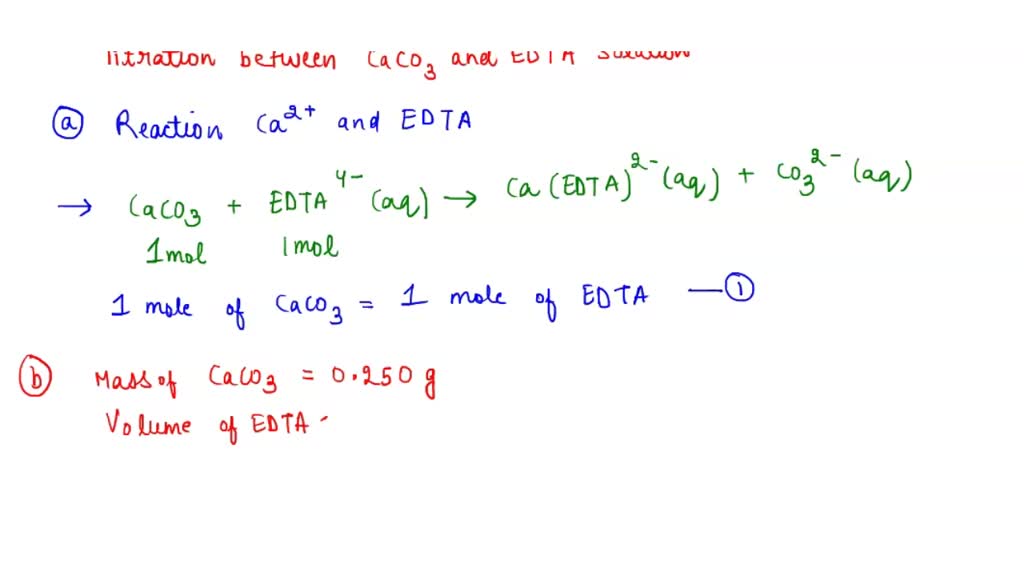 Titration between CaCO3 and EDTA solution
ⓐ Reaction Ca2+ and EDTA
→ CaCO3 + EDTA4- (aq) → Ca(EDTA)2- (aq) + CO32- (aq)
1mol 1mol
1 mole of CaCO3 = 1 mole of EDTA —①
ⓑ Mass of CaCO3 = 0.250 g
Volume of EDTA -